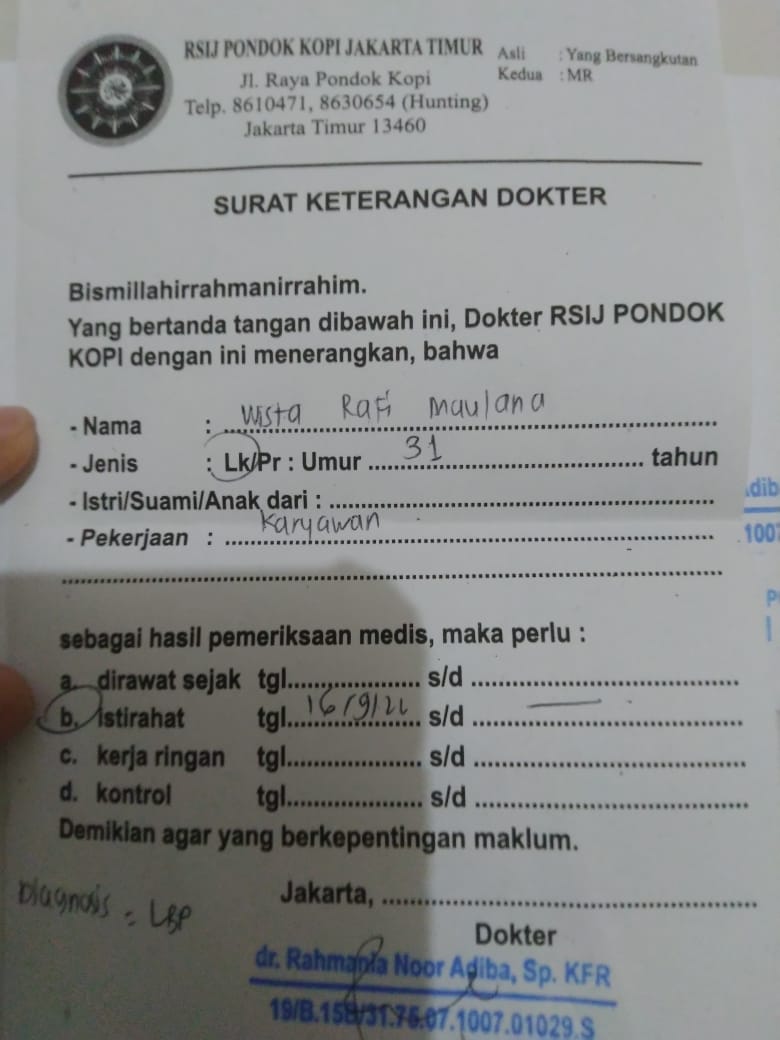 RSIJ PONDOK KOPI JAKARTA TIMUR
Jl. Raya Pondok Kopi
Telp. 8610471, 8630654 (Hunting)
Jakarta Timur 13460
Asli : Yang Bersangkutan
Kedua : MR
SURAT KETERANGAN DOKTER
Bismillahirrahmanirrahim.
Yang bertanda tangan dibawah ini, Dokter RSIJ PONDOK
KOPI dengan ini menerangkan, bahwa
- Nama : Wista Rafi Maulana
- Jenis : Lk/Pr : Umur 31 tahun
- Istri/Suami/Anak dari :
- Pekerjaan : Karyawan
sebagai hasil pemeriksaan medis, maka perlu :
a. dirawat sejak tgl. s/d
b. istirahat tgl. 16/9/22 s/d —
c. kerja ringan tgl. s/d
d. kontrol tgl. s/d
Demikian agar yang berkepentingan maklum.
Diagnosis = LBP
Jakarta,
Dokter
dr. Rahmania Noor Adiba, Sp. KFR
19/B.15B/31.75.07.1007.01029.S